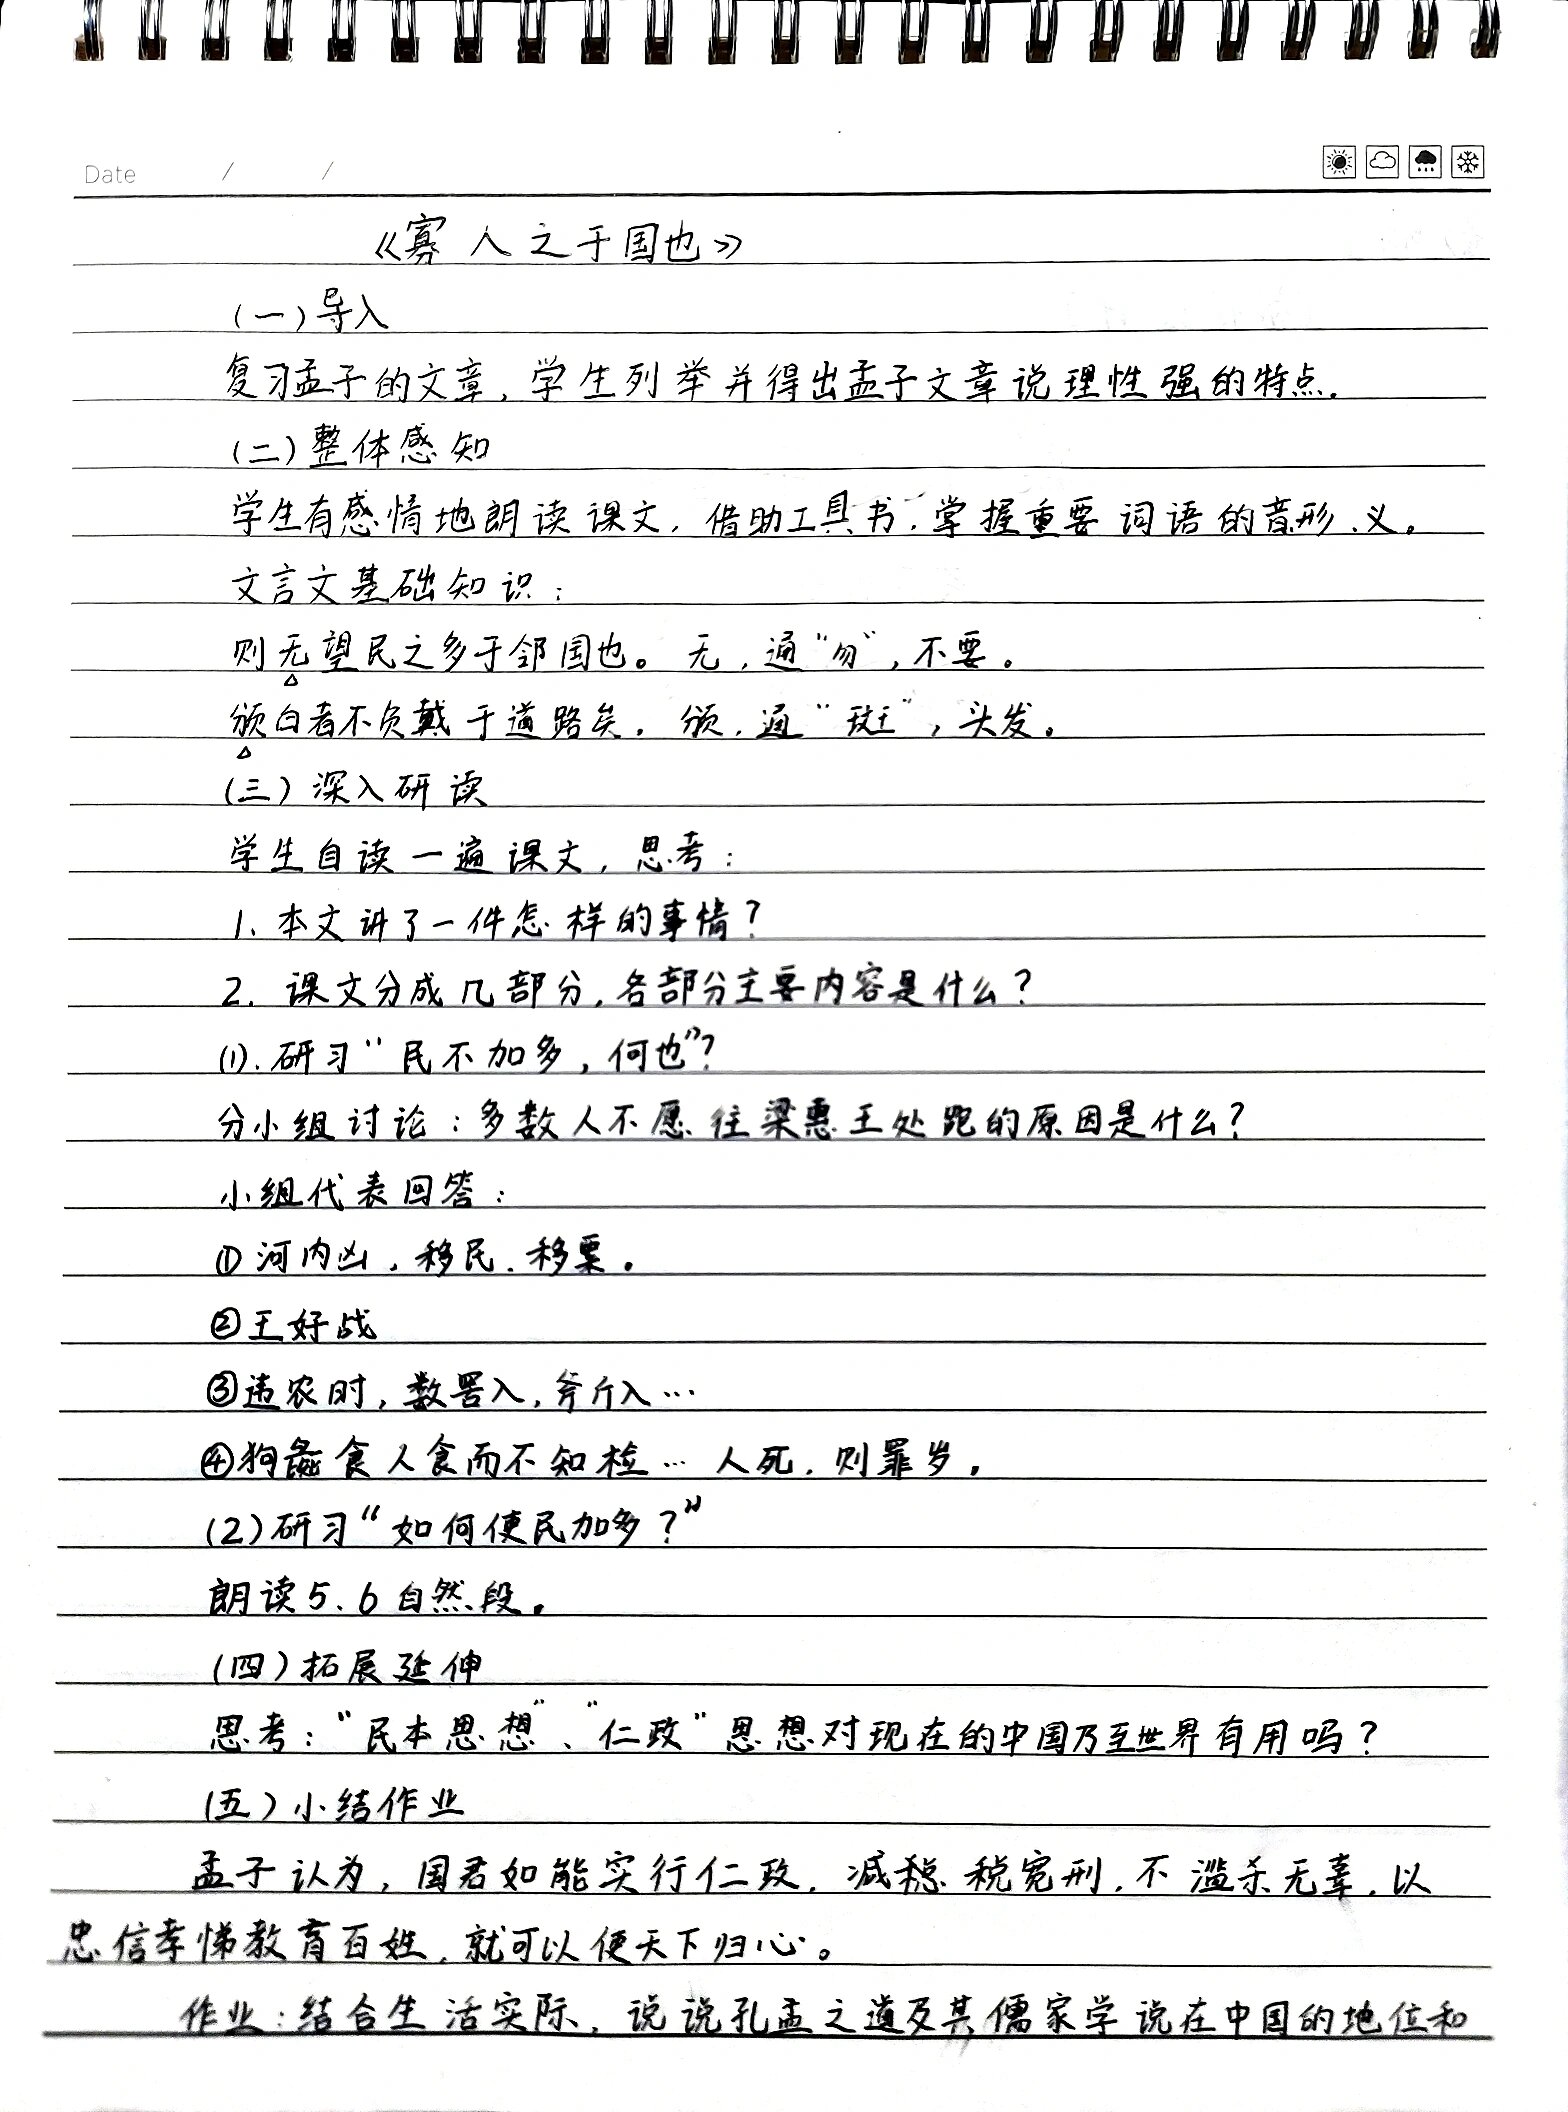 Date / /
《寡人之于国也》
(一)导入
复习孟子的文章,学生列举并得出孟子文章说理性强的特点.
(二)整体感知
学生有感情地朗读课文,借助工具书,掌握重要词语的音形、义。
文言文基础知识:
则无望民之多于邻国也。无,通“勿”,不要。
颁白者不负戴于道路矣.颁,通“斑”,头发。
(三)深入研读
学生自读一遍课文,思考:
1、本文讲了一件怎样的事情?
2. 课文分成几部分,各部分主要内容是什么?
(1).研习“民不加多,何也”?
分小组讨论:多数人不愿往梁惠王处跑的原因是什么?
小组代表回答:
①河内凶,移民、移粟。
②王好战
③违农时,数罟入,斧斤入…
④狗彘食人食而不知检…人死,则罪岁。
(2)研习“如何使民加多?”
朗读5、6自然段。
(四)拓展延伸
思考:“民本思想”、“仁政”思想对现在的中国乃至世界有用吗?
(五)小结作业
孟子认为,国君如能实行仁政,减税宽刑,不滥杀无辜,以
忠信孝悌教育百姓,就可以使天下归心。
作业:结合生活实际,说说孔孟之道及其儒家学说在中国的地位和